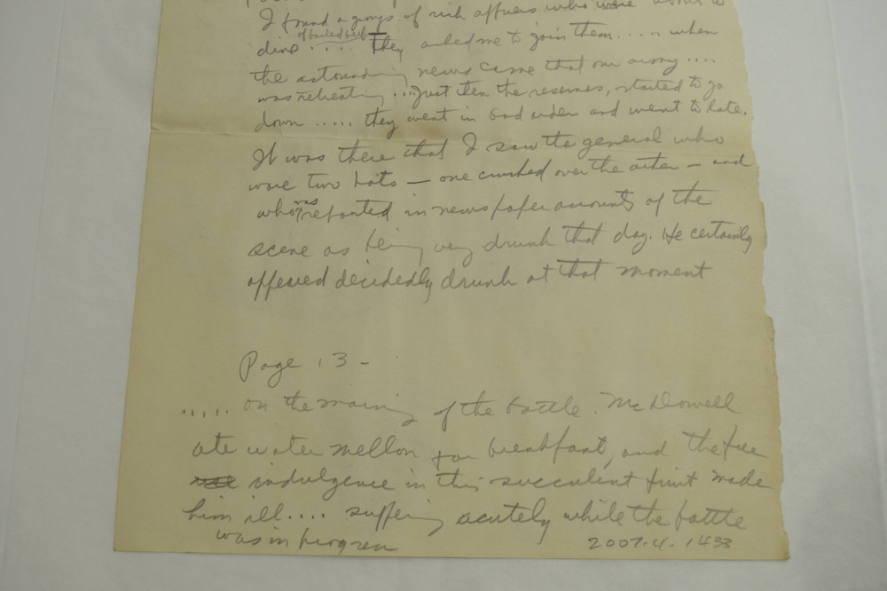 I found a group of
of boiled beef
dine .... They asked me to join them .... when
the astounding news came that our army ....
was retreating .... Just then the reserves, started to go
down ..... they went in bad order and went to late.
It was there that I saw the general who
wore two hats — one crushed over the other — and
who was reported in newspaper accounts of the
scene as being very drunk that day. He certainly
appeared decidedly drunk at that moment
Page 13 -
..... on the morning of the battle. McDowell
ate water mellon for breakfast, and the free
indulgence in this succulent fruit made
him ill.... suffering acutely while the battle
was in progress
2007.4.1433